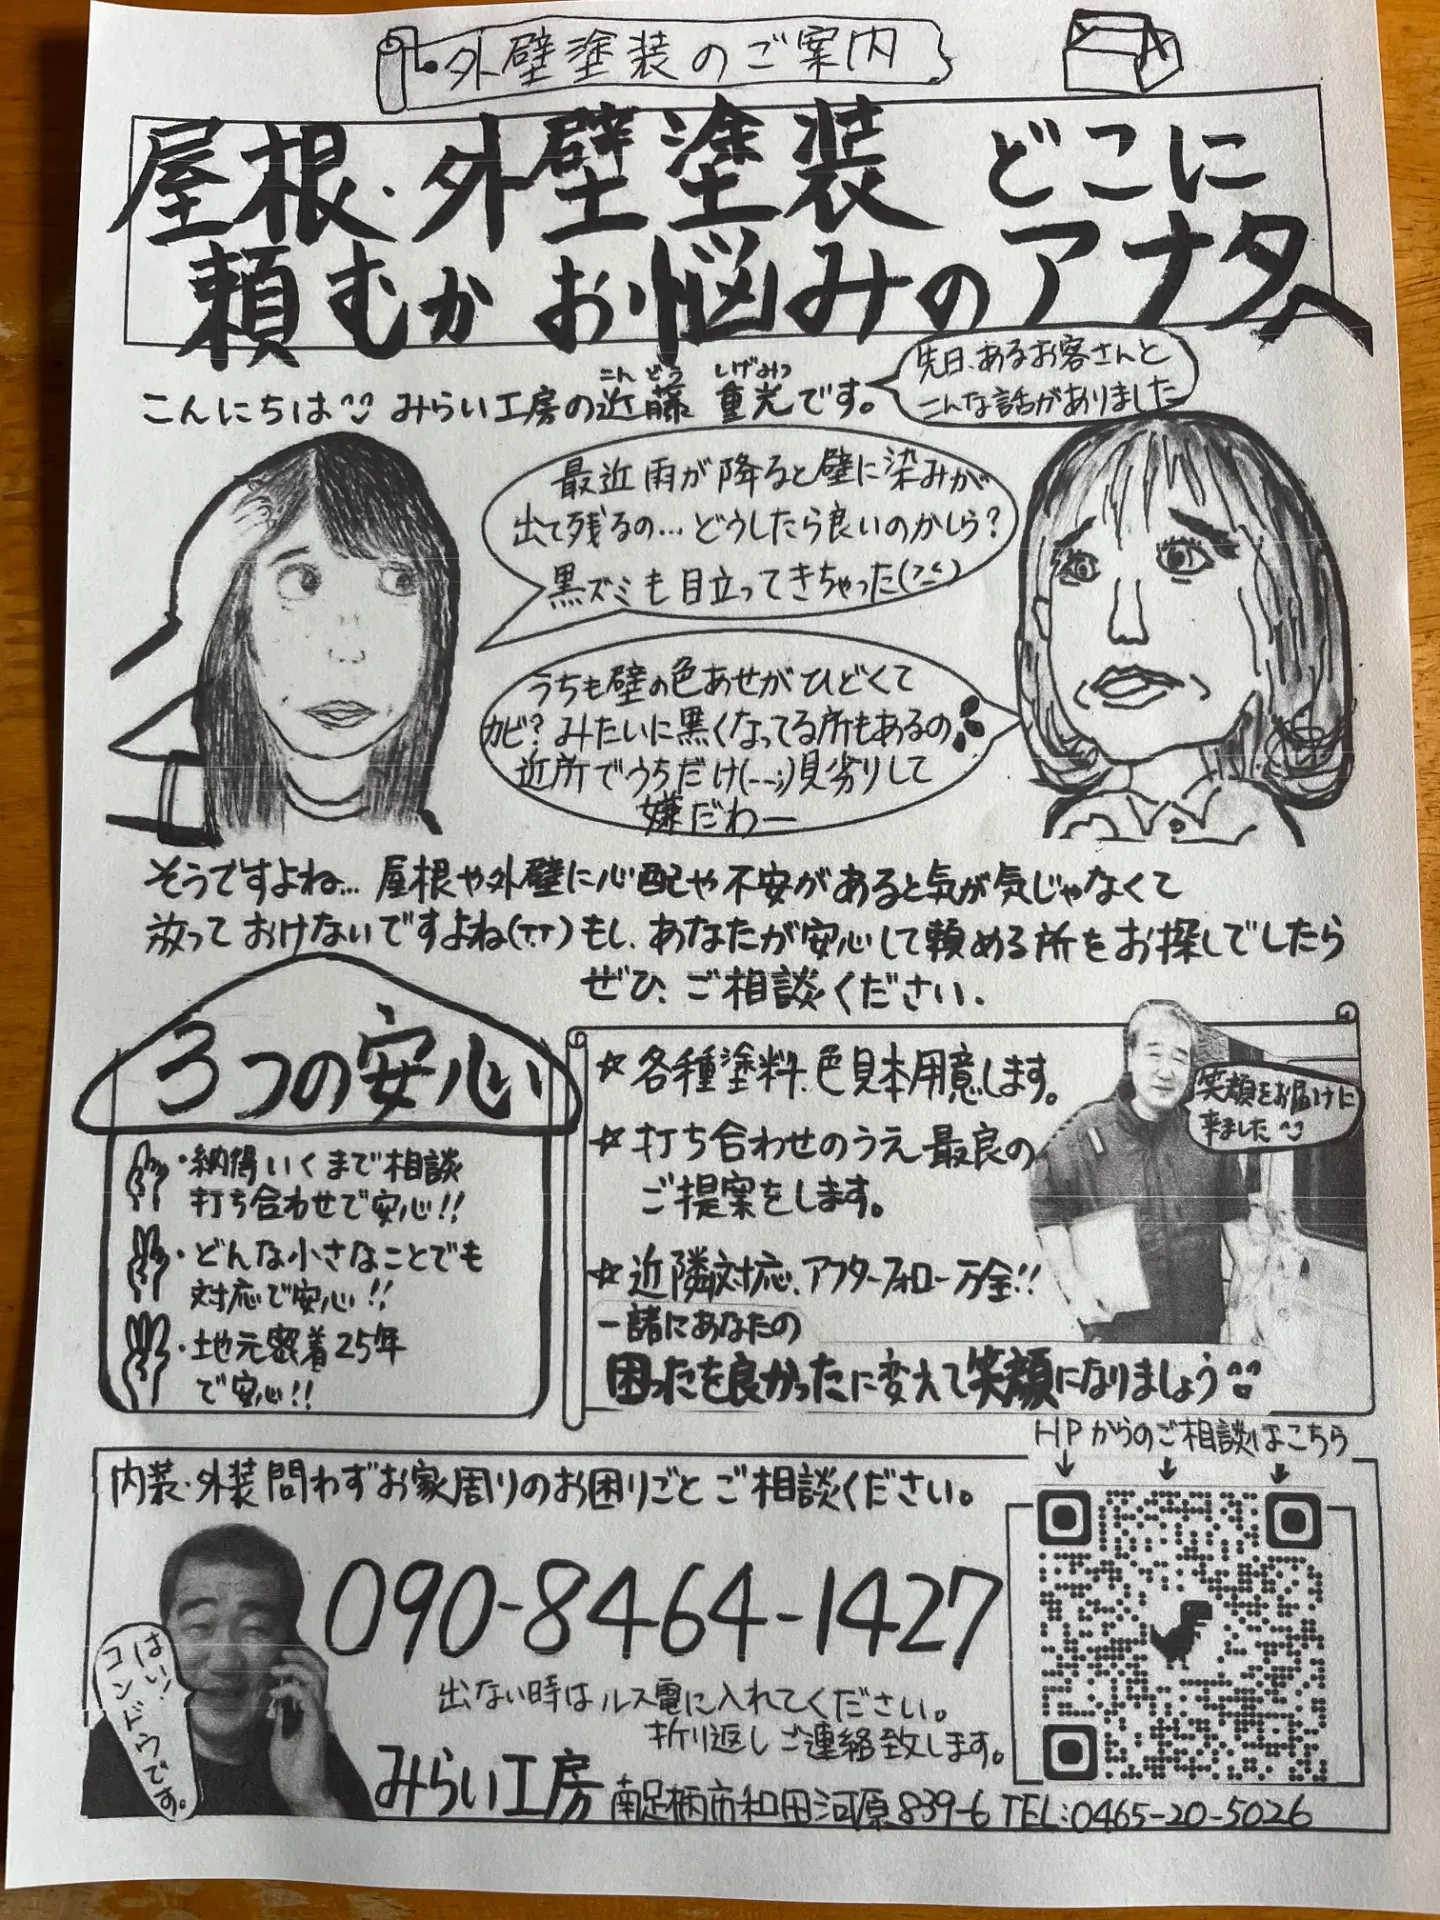 外壁塗装のご案内
屋根・外壁塗装 どこに
頼むか お悩みのアナタへ
こんにちは みらい工房の近藤 重光です。
こん どう しげみつ
先日、あるお客さんと
こんな話がありました
最近雨が降ると壁に染みが
出て残るの…どうしたら良いのかしら?
黒ズミも目立ってきちゃった
うちも壁の色あせがひどくて
カビ?みたいに黒くなってる所もあるの
近所でうちだけ(--;)見劣りして
嫌だわー
そうですよね…屋根や外壁に心配や不安があると気が気じゃなくて
放っておけないですよね(T.T)もし、あなたが安心して頼める所をお探しでしたら
ぜひ、ご相談ください.
3つの安心
・納得いくまで相談
打ち合わせで安心!!
・どんな小さなことでも
対応で安心!!
・地元密着25年
で安心!!
☆各種塗料、色見本用意します。
☆打ち合わせのうえ、最良の
ご提案をします。
☆近隣対応、アフターフォロー万全!!
笑顔をお届けに
来ました
一諸にあなたの
困ったを良かったに変えて笑顔になりましょう
HPからのご相談はこちら
内装・外装問わずお家周りのお困りごとご相談ください。
090-8464-1427
はい!
コンドウです。
出ない時はルス電に入れてください。
折り返しご連絡致します。
みらい工房 南足柄市和田河原839-6 TEL:0465-20-5026